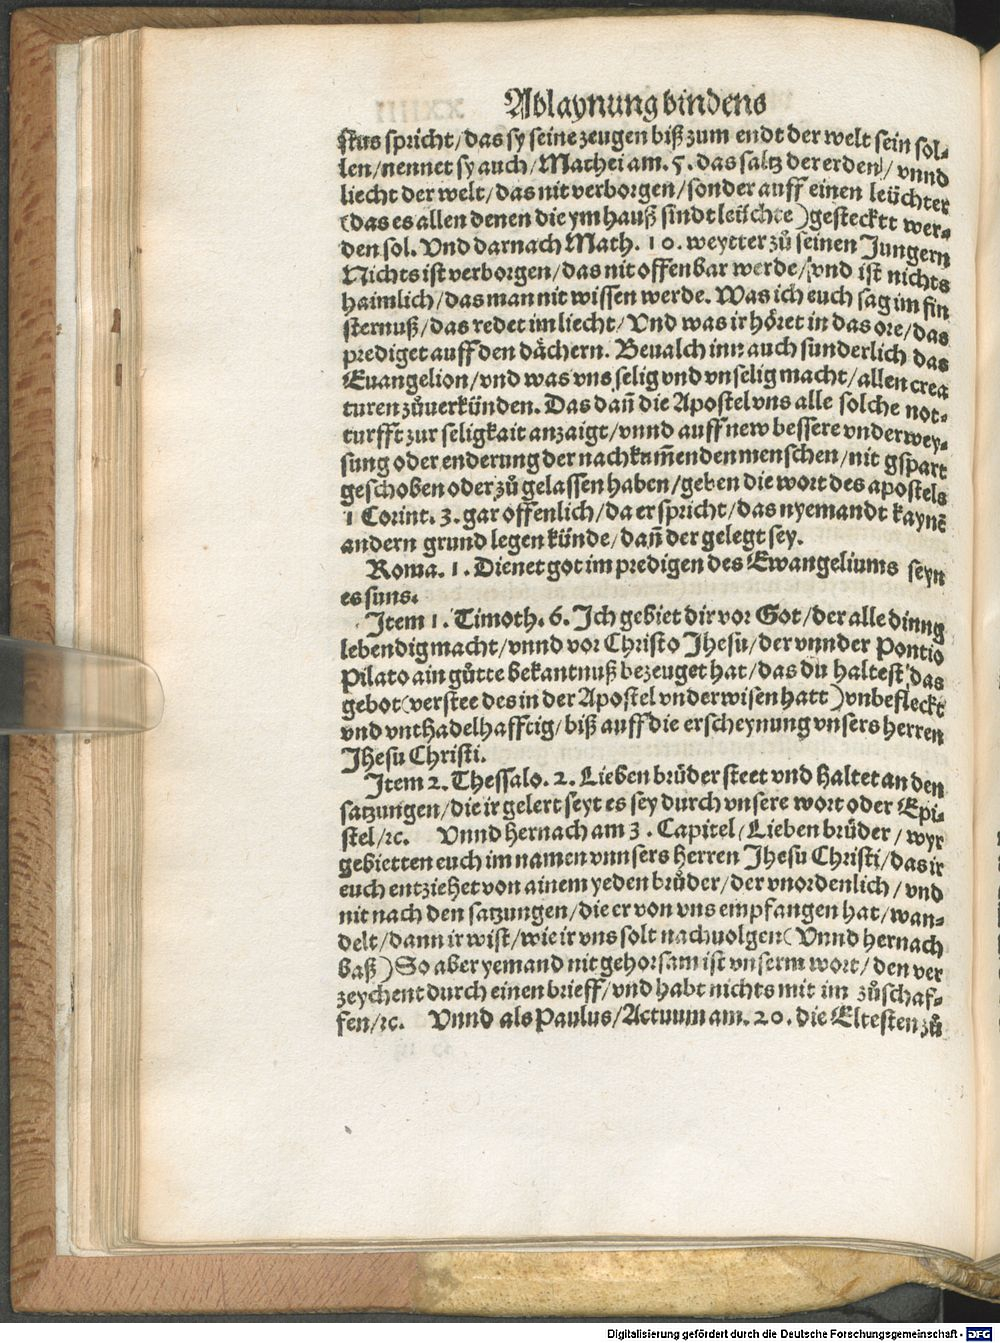 Ablaynung bindens
stus spricht/das sy seine zeugen biß zum endt der welt sein sol⸗
len/nennet sy auch/Mathei am. 5. das saltz der erden/vnnd
liecht der welt/das nit verborgen/sonder auff einen leüchter
(das es allen denen die ym hauß sindt leüchte) gestecktt wer⸗
den sol. Vnd darnach Math. 10. weytter zů seinen Jungern
Nichts ist verborgen/das nit offenbar werde/vnd ist nichts
haimlich/das man nit wissen werde. Was ich euch sag im fin
sternuß/das redet im liecht/Vnd was ir höret in das ore/das
prediget auff den dächern. Beualch inn auch sunderlich das
Euangelion/vnd was vns selig vnd vnselig macht/allen crea
turen zůuerkünden. Das dañ die Apostel vns alle solche not⸗
turfft zur seligkait anzaigt/vnnd auff new bessere vnderwey⸗
sung oder enderung der nachkum̃enden menschen/nit gspart
geschoben oder zů gelassen haben/geben die wort des apostels
1 Corint. 3. gar offenlich/da er spricht/das nyemandt kaynē
andern grund legen künde/dañ der gelegt sey.
Roma. 1. Dienet got im predigen des Ewangeliums seyn
es suns.
Item 1. Timoth. 6. Ich gebiet dir vor Got/der alle dinng
lebendig macht/vnnd vor Christo Jhesu/der vnnder Pontio
Pilato ain gůtte bekantnuß bezeuget hat/das du haltest das
gebot(verstee des in der Apostel vnderwisen hatt) vnbefleckt
vnd vnthadelhafftig/biß auff die erscheynung vnsers herren
Jhesu Christi.
Item 2. Thessalo. 2. Lieben brüder steet vnd haltet an den
satzungen/die ir gelert seyt es sey durch vnsere wort oder Epi⸗
stel/ꝛc. Vnnd hernach am 3. Capitel(Lieben brüder/wyr
gebietten euch im namen vnnsers herren Jhesu Christi/das ir
euch entziehet von ainem yeden brůder/der vnordenlich/vnd
nit nach den satzungen/die er von vns empfangen hat/wan⸗
delt/dann ir wist/wie ir vns solt nachuolgen(Vnnd hernach
baß) So aber yemand nit gehorsam ist vnserm wort/den ver
zeychent durch einen brieff/vnd habt nichts mit im zůschaf⸗
fen/ꝛc. Vnnd als Paulus/Actuum am. 20. die Eltesten zů
Digitalisierung gefördert durch die Deutsche Forschungsgemeinschaft - DFG